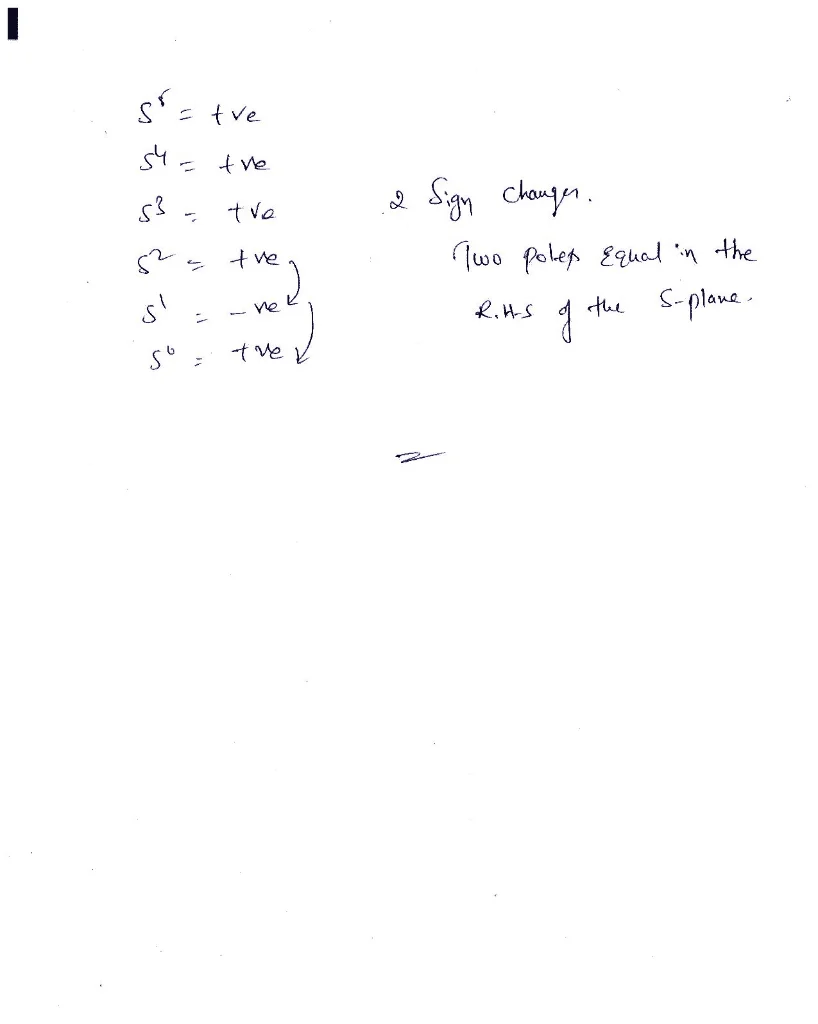 S⁵ = +ve
S⁴ = +ve
S³ = +ve
S² = +ve
S¹ = -ve
S⁰ = +ve
2 Sign changes.
Two poles Equal in the
R.H.S of the S-plane.